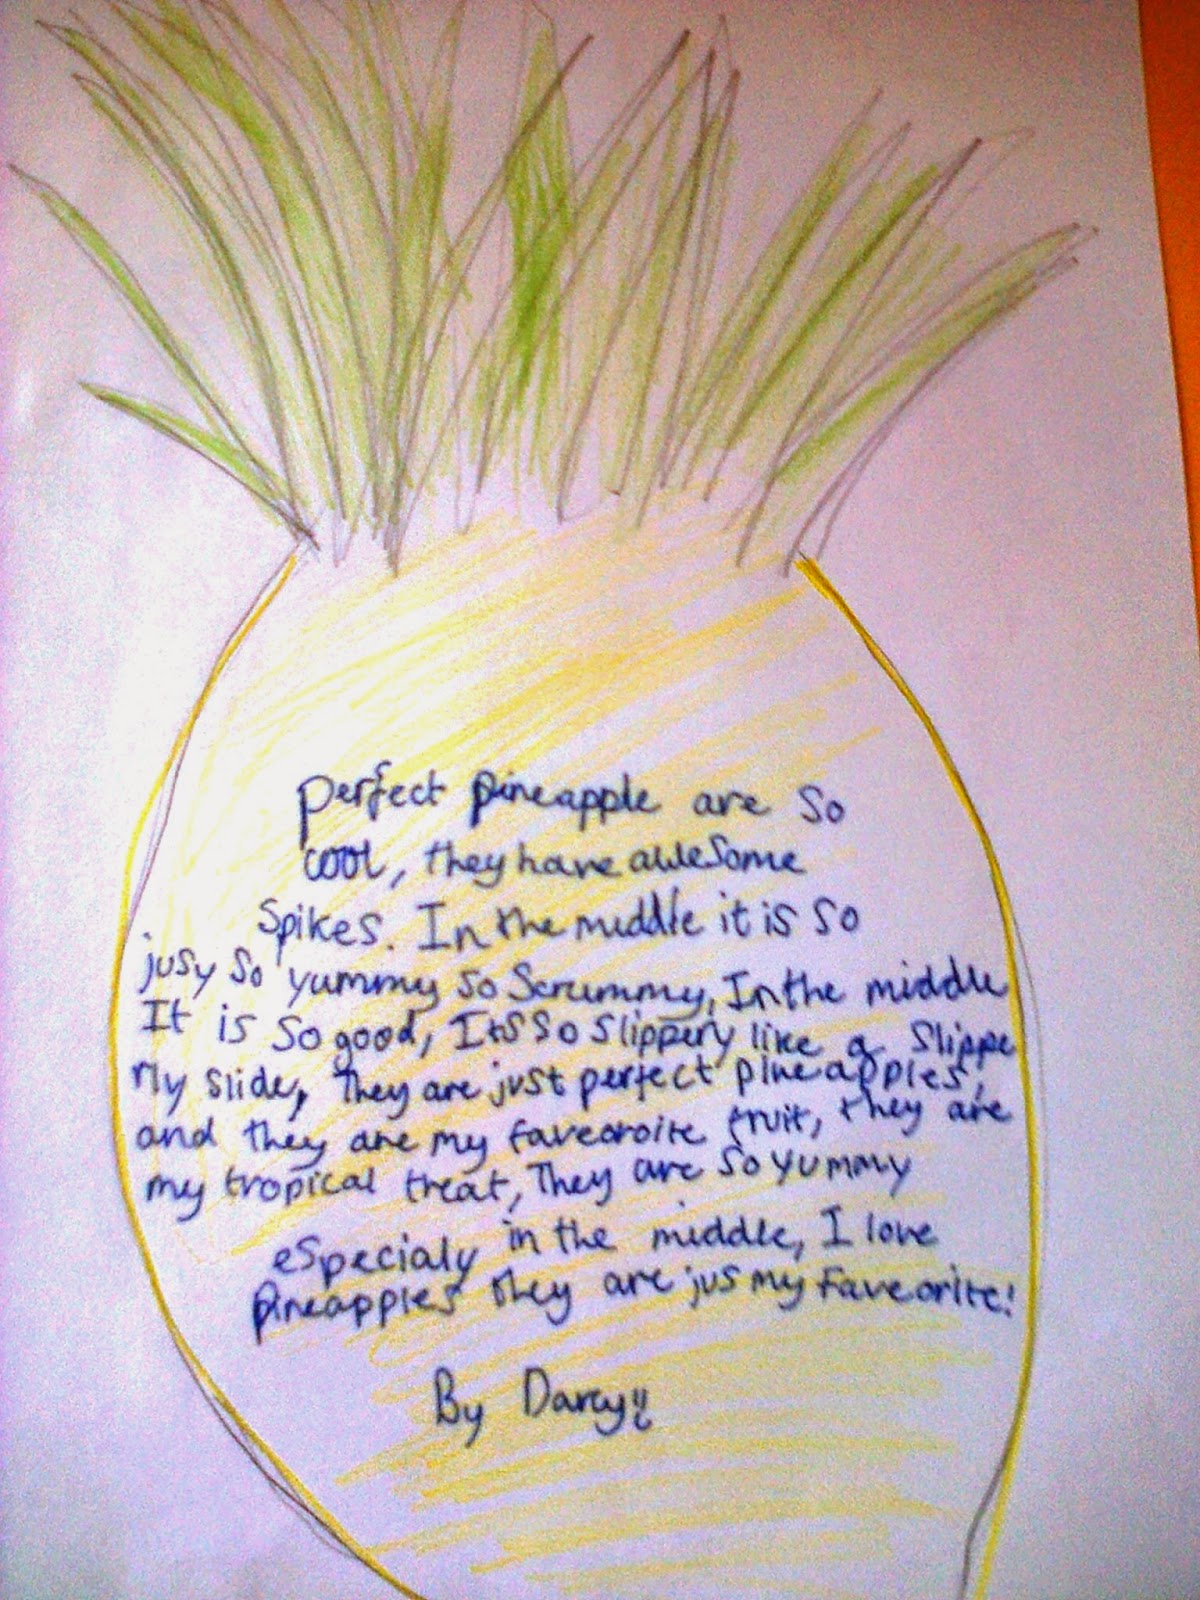 perfect pineapple are so
cool, they have awesome
spikes. In the middle it is so
jusy so yummy so scrummy, In the middle
It is so good, Its so slippery like a slippe
rly slide, They are just perfect pineapples,
and they are my faveoroite fruit, they are
my tropical treat, They are so yummy
especialy in the middle, I love
pineapples they are jus my Faveorite!
By Darcy!!